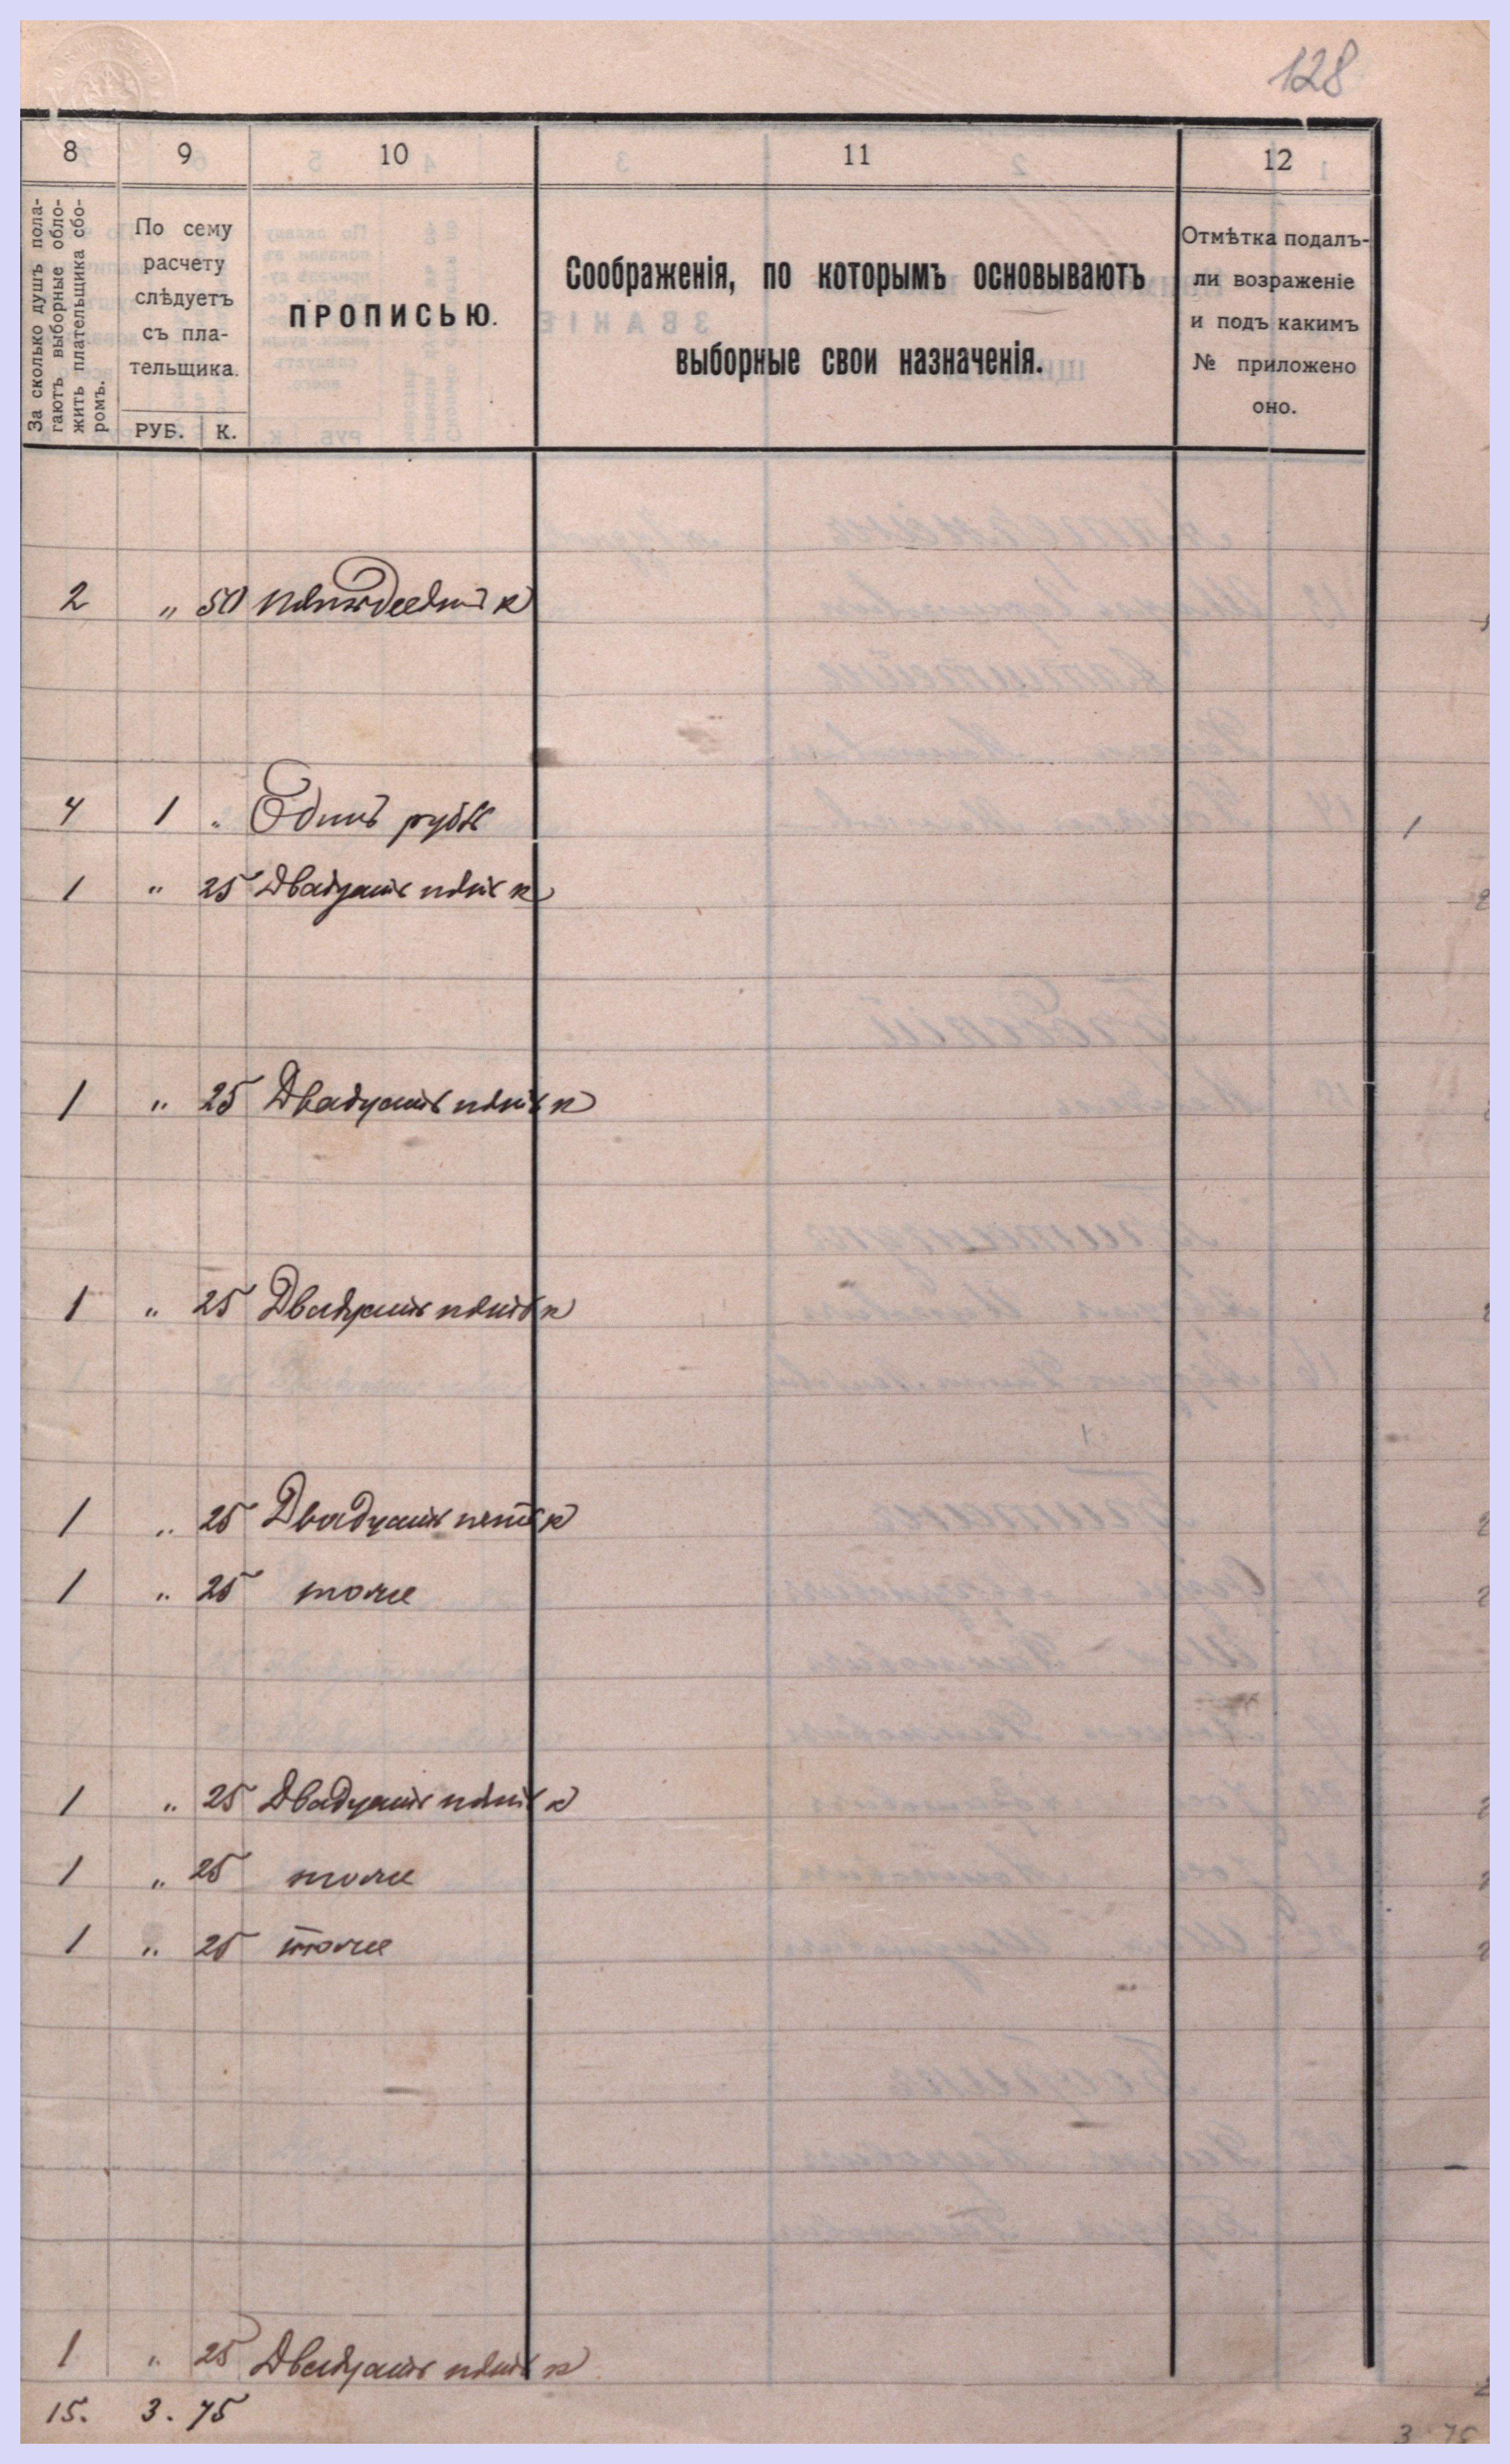 128
8 9 10 11 12
За сколько душъ пола-
гаютъ выборные обло-
жить плательщика сбо-
ромъ.
По сему
расчету
слѣдуетъ
съ пла-
тельщика.
РУБ. К.
ПРОПИСЬЮ.
Соображенія, по которымъ основываютъ
выборные свои назначенія.
Отмѣтка подалъ-
ли возраженіе
и подъ какимъ
№ приложено
оно.
2 „ 50 пятьдесятъ к
4 1 „ Одинъ рубль
1 „ 25 Двадцать пять к
1 „ 25 Двадцать пять к
1 „ 25 Двадцать пять к
1 „ 25 Двадцать пять к
1 „ 25 тоже
1 „ 25 Двадцать пять к
1 „ 25 тоже
1 „ 25 тоже
1 „ 25 Двадцать пять к
15. 3. 75